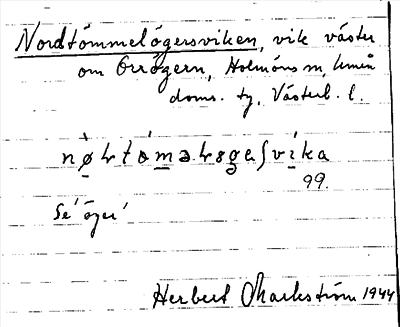 Nordtömmelögersviken, vik väster
om Orrögern, Holmöns sn, Umeå
doms. tg, Västerb. l.
99.
Se 'öger'
Herbert Markström 1944